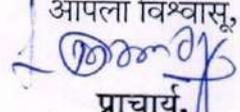 आपला विश्वासू,
प्राचार्य,